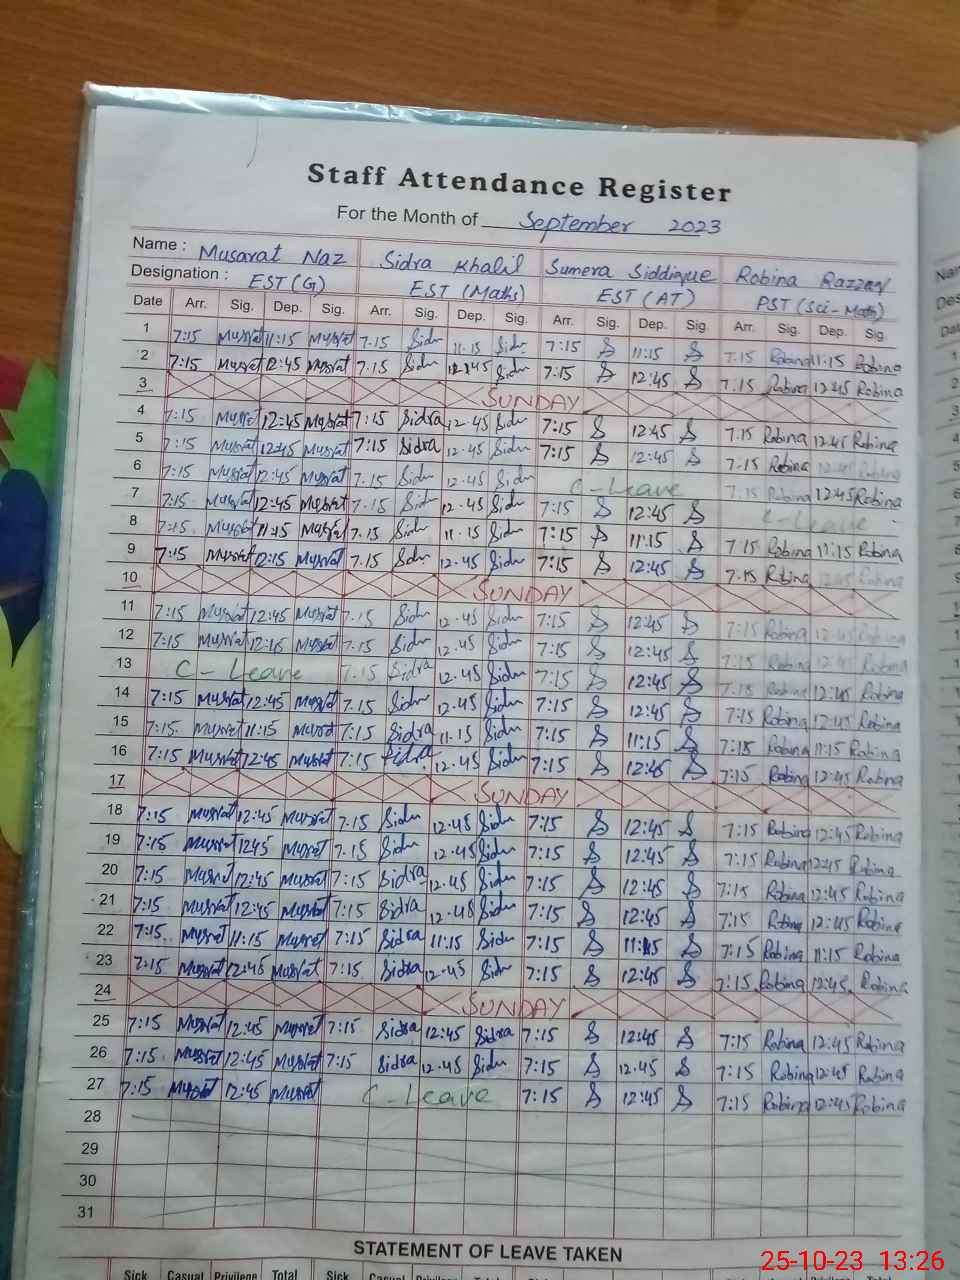 Staff Attendance Register
For the Month of September 2023
Name : Musarat Naz Sidra Khalil Sumera Siddique Robina Razzaq
Designation : EST (G) EST (Maths) EST (AT) PST (Sci-Math)
Date Arr. Sig. Dep. Sig. Arr. Sig. Dep. Sig. Arr. Sig. Dep. Sig. Arr. Sig. Dep. Sig.
1 7:15 Musrat 11:15 Musrat 7.15 Sidra 11.15 Sidra 7:15 S 11:15 S 7.15 Robina 11:15 Robina
2 7:15 Musrat 12:45 Musrat 7.15 Sidra 12.45 Sidra 7:15 S 12:45 S 7.15 Robina 12:45 Robina
3 SUNDAY
4 7:15 Musrat 12:45 Musrat 7:15 Sidra 12.45 Sidra 7:15 S 12:45 S 7.15 Robina 12:45 Robina
5 7:15 Musrat 12:45 Musrat 7:15 Sidra 12.45 Sidra 7:15 S 12:45 S 7.15 Robina 12:45 Robina
6 7:15 Musrat 12:45 Musrat 7.15 Sidra 12.45 Sidra C-Leave 7.15 Robina 12:45 Robina
7 7:15 Musrat 12:45 Musrat 7.15 Sidra 12.45 Sidra 7:15 S 12:45 S C-Leave
8 7:15 Musrat 11:15 Musrat 7.15 Sidra 11.15 Sidra 7:15 S 11:15 S 7:15 Robina 11:15 Robina
9 7:15 Musrat 12:15 Musrat 7.15 Sidra 12.45 Sidra 7:15 S 12:45 S 7.15 Robina 12:45 Robina
10 SUNDAY
11 7:15 Musrat 12:45 Musrat 7.15 Sidra 12.45 Sidra 7:15 S 12:45 S 7:15 Robina 12:45 Robina
12 7:15 Musrat Musrat 7.15 Sidra 12.45 Sidra 7:15 S 12:45 S 7:15 Robina 12:45 Robina
13 C-Leave 7.15 Sidra 12.45 Sidra 7:15 S 12:45 S 7.15 Robina 12:45 Robina
14 7:15 Musrat 12:45 Musrat 7.15 Sidra 12.45 Sidra 7:15 S 12:45 S 7:15 Robina 12:45 Robina
15 7:15 Musrat 11:15 Musrat 7:15 Sidra 11.15 Sidra 7:15 S 11:15 S 7:15 Robina 11:15 Robina
16 7:15 Musrat 12:45 Musrat 7:15 Sidra 12.45 Sidra 7:15 S 12:45 S 7:15 Robina 12:45 Robina
17 SUNDAY
18 7:15 Musrat 12:45 Musrat 7.15 Sidra 12.45 Sidra 7:15 S 12:45 S 7:15 Robina 12:45 Robina
19 7:15 Musrat 1245 Musrat 7.15 Sidra 12.45 Sidra 7:15 S 12:45 S 7:15 Robina 12:45 Robina
20 7:15 Musrat 12:45 Musrat 7:15 Sidra 12.45 Sidra 7:15 S 12:45 S 7:15 Robina 12:45 Robina
21 7:15 Musrat 12:45 Musrat 7:15 Sidra 12.45 Sidra 7:15 S 12:45 S 7:15 Robina 12:45 Robina
22 7:15 Musrat 11:15 Musrat 7:15 Sidra 11:15 Sidra 7:15 S 11:15 S 7:15 Robina 11:15 Robina
23 7:15 Musrat 12:45 Musrat 7:15 Sidra 12.45 Sidra 7:15 S 12:45 S 7:15 Robina 12:45 Robina
24 SUNDAY
25 7:15 Musrat 12:45 Musrat 7:15 Sidra 12:45 Sidra 7:15 S 12:45 S 7:15 Robina 12:45 Robina
26 7:15 Musrat 12:45 Musrat 7:15 Sidra 12.45 Sidra 7:15 S 12.45 S 7:15 Robina 12:45 Robina
27 7:15 Musrat 12:45 Musrat C-Leave 7:15 S 12:45 S 7:15 Robina 12:45 Robina
28
29
30
31
STATEMENT OF LEAVE TAKEN
Sick Casual Privilege Total Sick
25-10-23 13:26